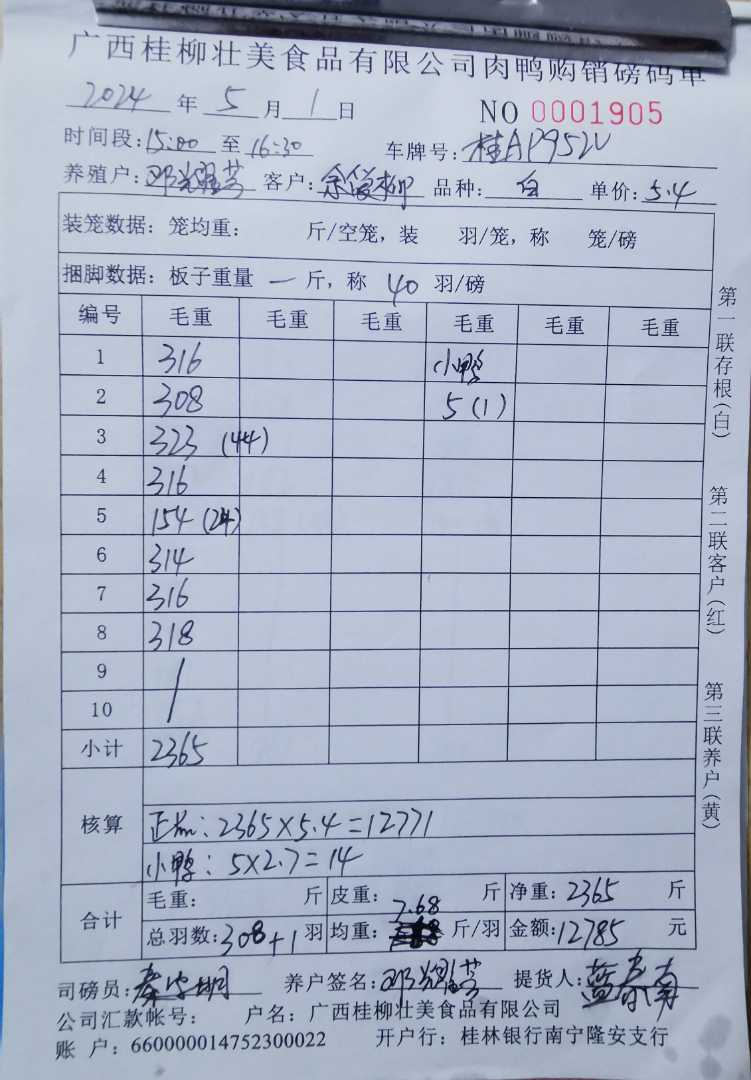 广西桂柳壮美食品有限公司肉鸭购销磅码单
2024 年 5 月 1 日 NO 0001905
时间段:15:00 至 16:30 车牌号:桂AP952V
养殖户: 客户: 品种:白 单价:5.4
装笼数据: 笼均重: 斤/空笼,装 羽/笼,称 笼/磅
捆脚数据: 板子重量 一 斤,称 40 羽/磅
编号 毛重 毛重 毛重 毛重 毛重 毛重
1 316 小鸭
2 308 5(1)
3 323(44)
4 316
5 154(24)
6 314
7 316
8 318
9 /
10
小计 2365
核算
正:2365×5.4=12771
小鸭:5×2.7=14
合计
毛重: 斤 皮重: 斤 净重:2365 斤
总羽数:308+1 羽 均重:7.68 斤/羽 金额:12785 元
司磅员: 养户签名: 提货人:
公司汇款帐号: 户名:广西桂柳壮美食品有限公司
账 户:660000014752300022 开户行:桂林银行南宁隆安支行
第一联存根(白)
第二联客户(红)
第三联养户(黄)